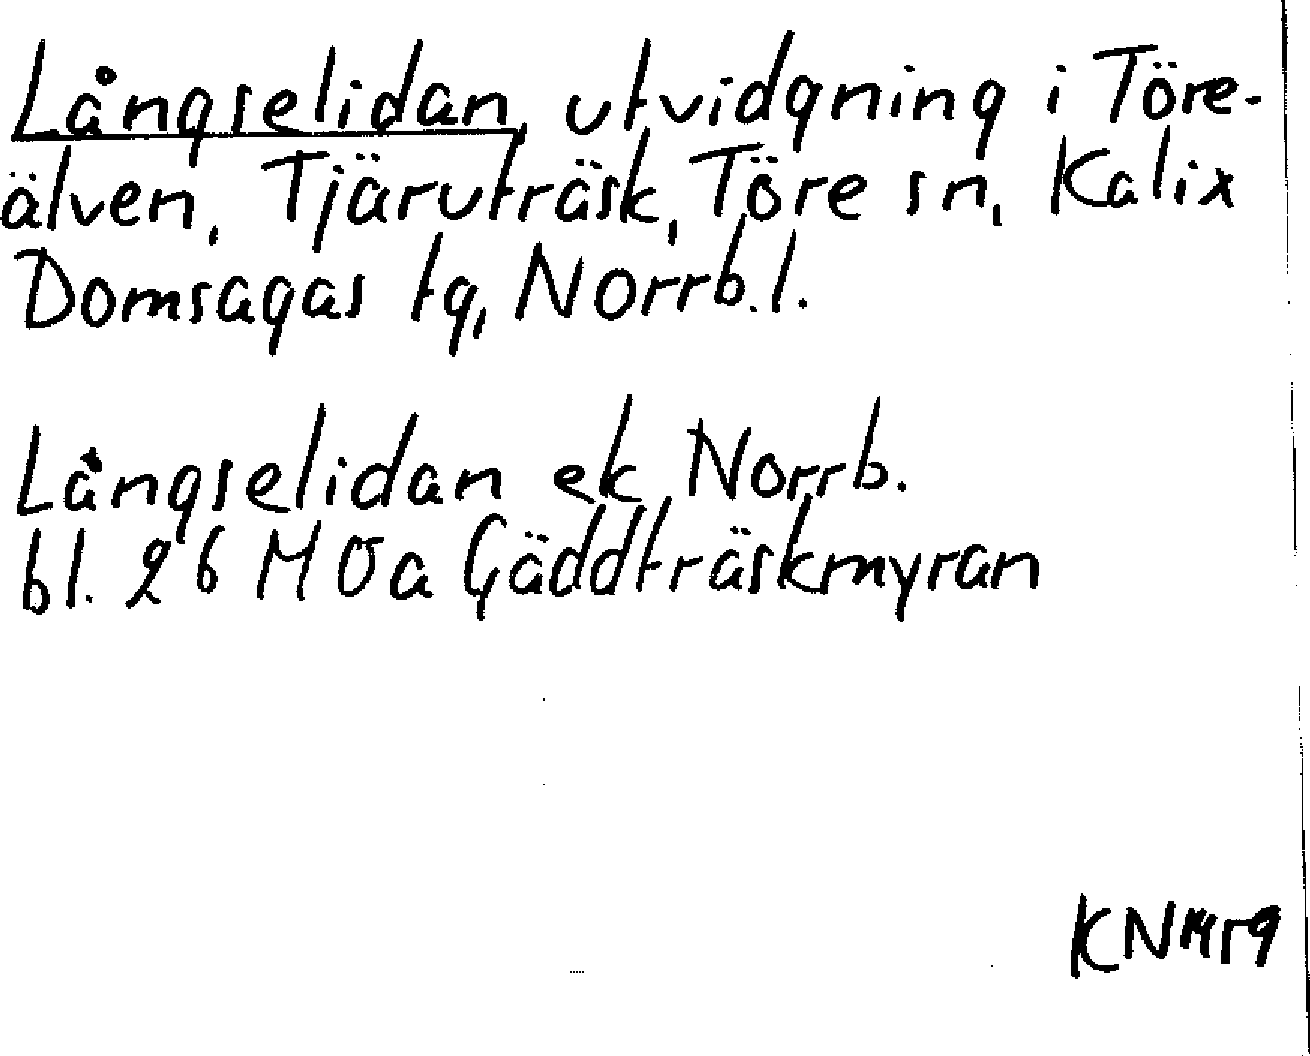 Långselidan, utvidgning i Töre-
älven, Tjäruträsk, Töre sn, Kalix
Domsagas tg, Norrb.l.
Långselidan ek, Norrb.
bl. 26 M 0a Gäddträskmyran